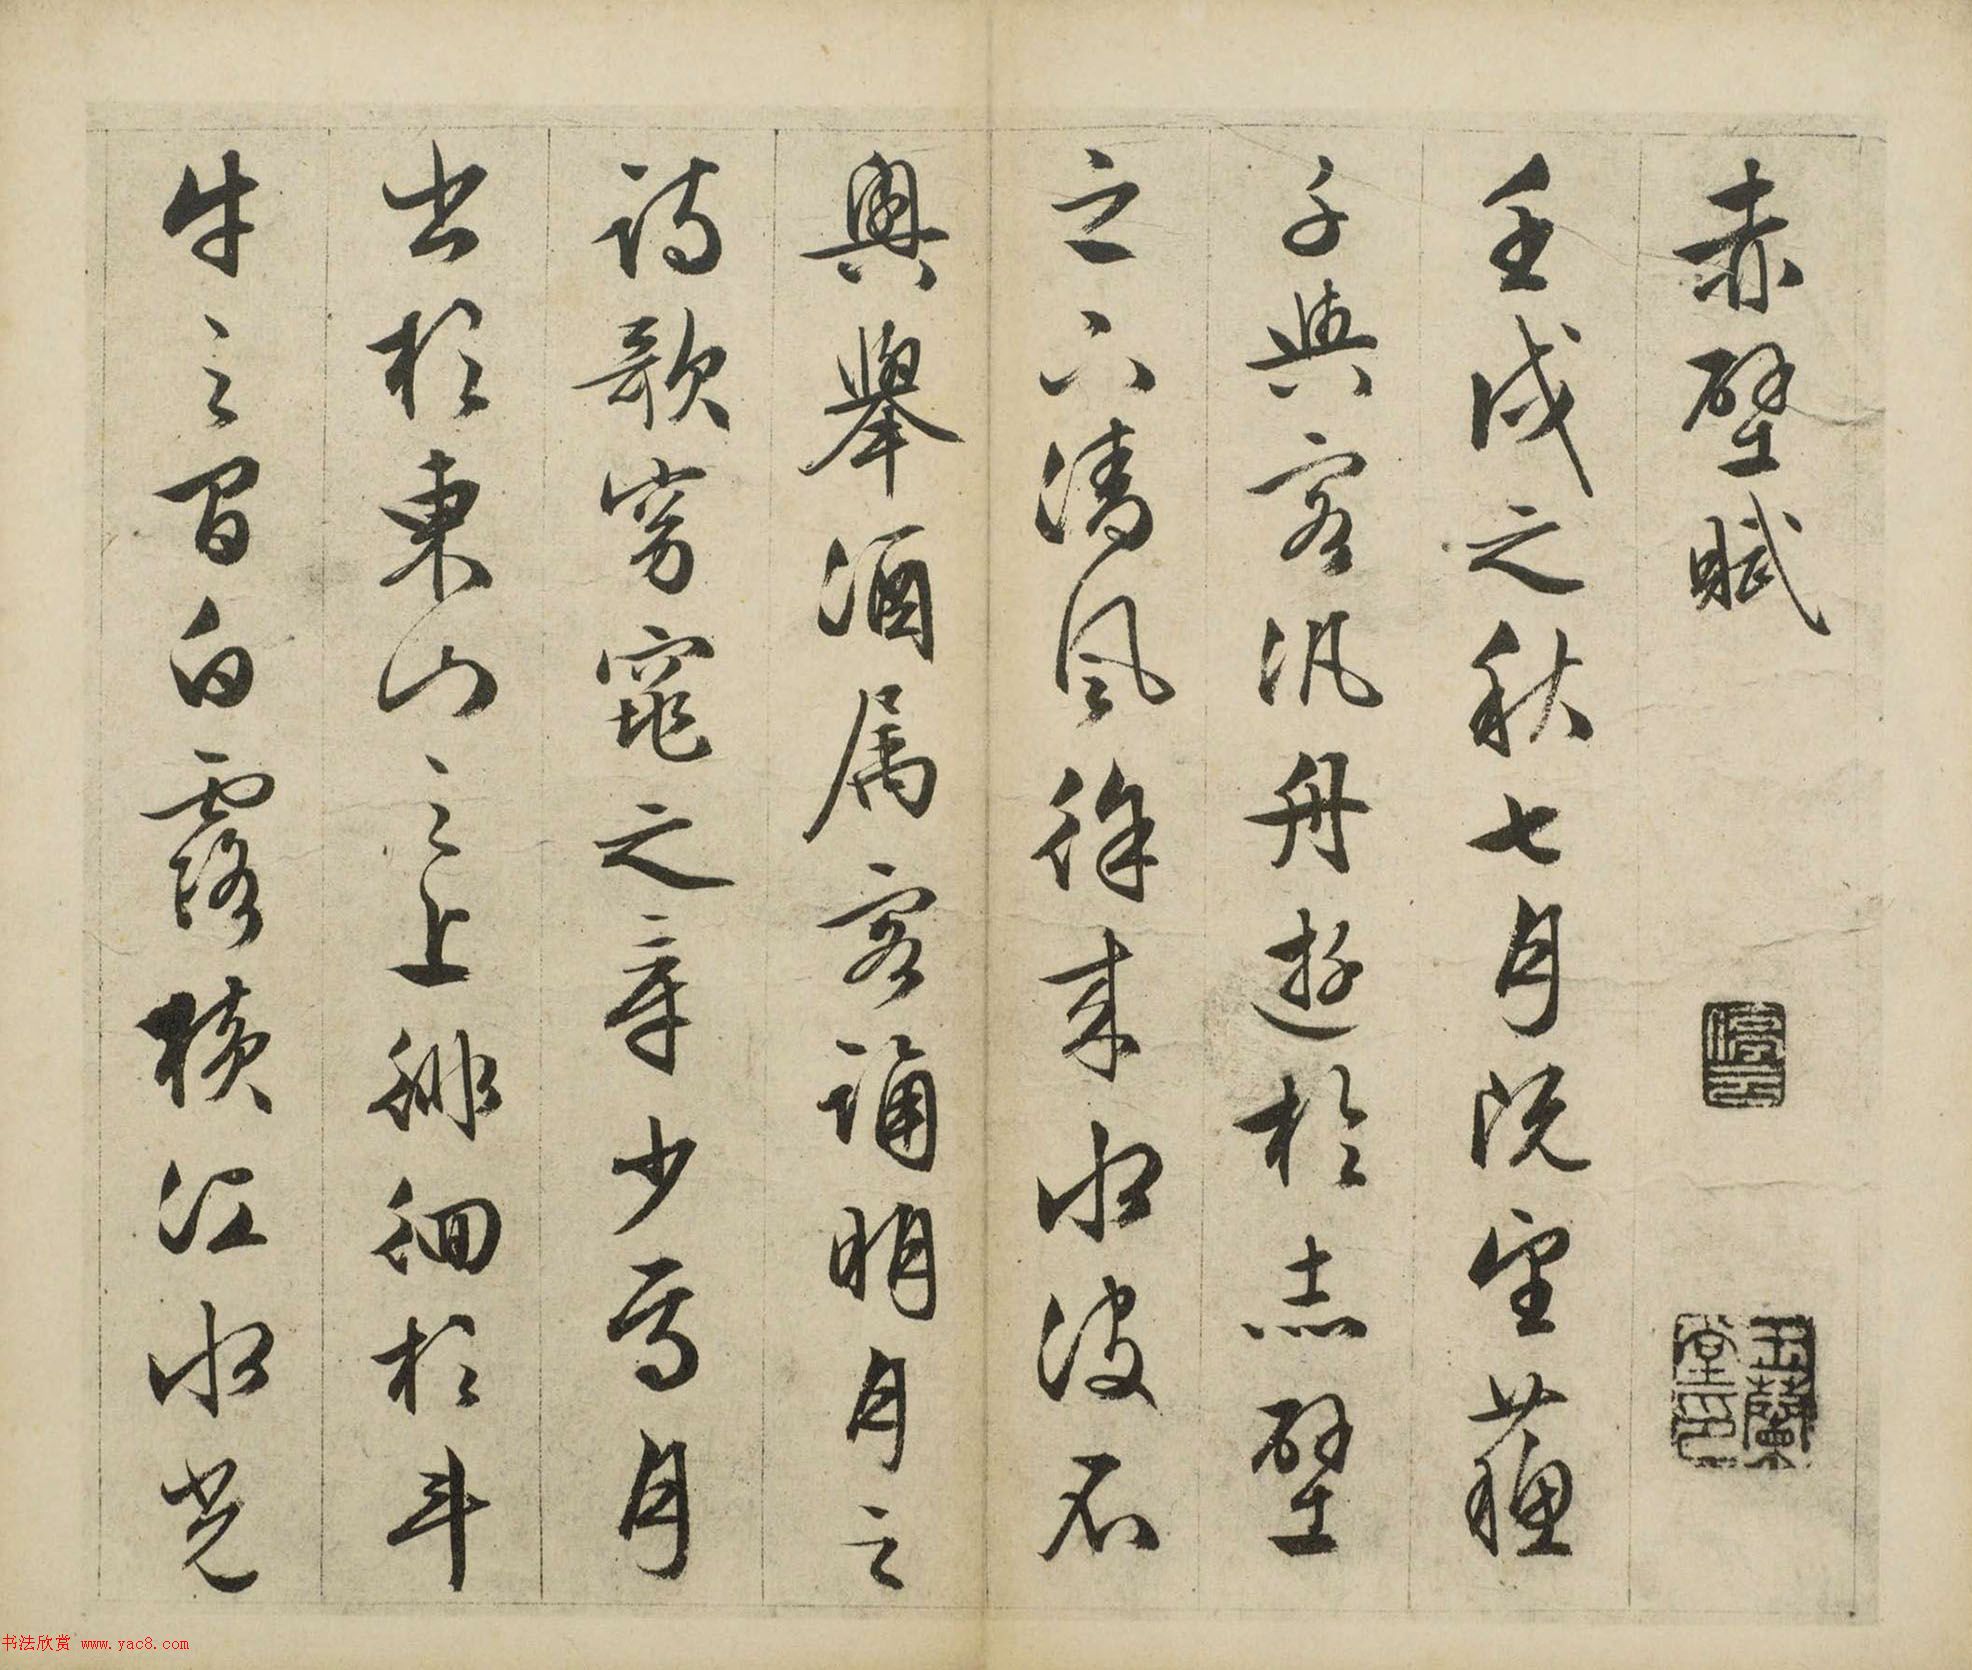 赤壁賦
停云
玉蘭堂印
壬戌之秋七月既望蘇
子與客汎舟遊於赤壁
之下清風徐來水波不
興舉酒属客誦明月之
詩歌窈窕之章少焉月
出於東山之上徘徊於斗
牛之間白露橫江水光
书法欣赏 www.yac8.com